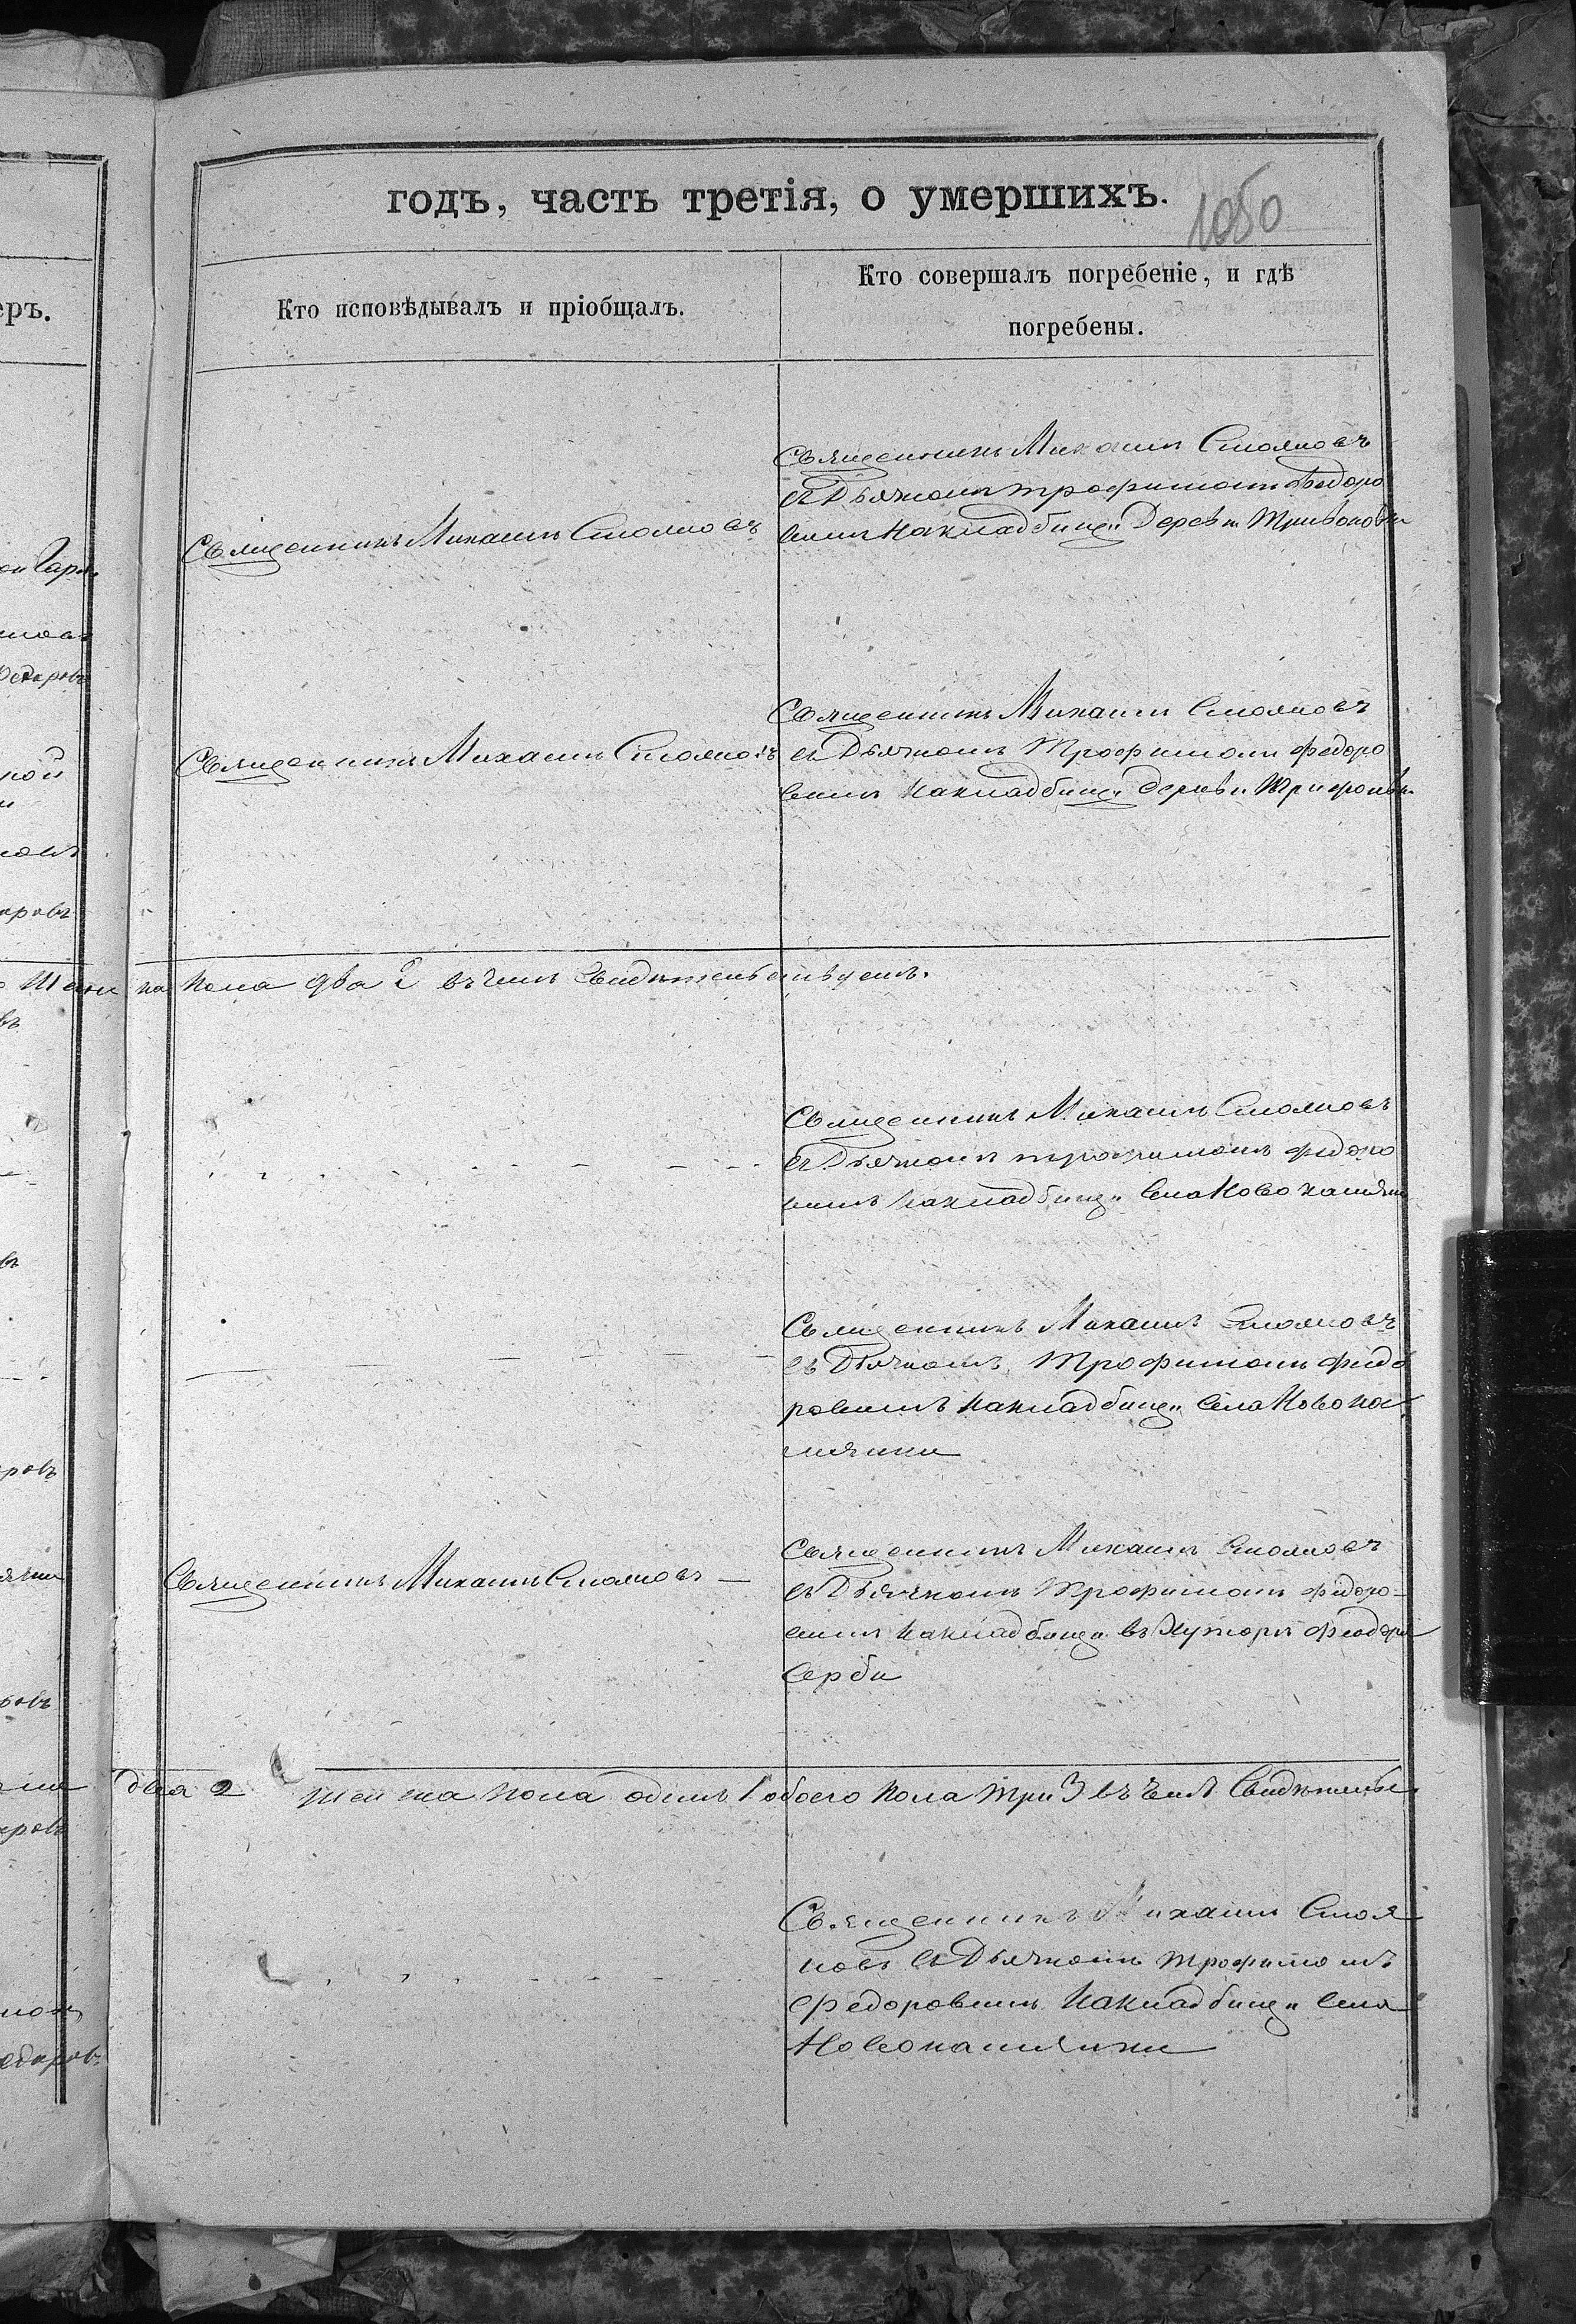 годъ, часть третія, о умершихъ.
1050
еръ.
Кто исповѣдывалъ и пріобщалъ.
Кто совершалъ погребеніе, и гдѣ
погребены.
Священникъ Михаилъ Стояновъ
съ Дьячкомъ Трофимомъ Федоро
вымъ на кладбищи Деревн
Священникъ Михаилъ Стояновъ
Священникъ Михаилъ Стояновъ
съ Дьячкомъ Трофимомъ Федоро
вымъ на кладбищи Дерев
Священникъ Михаилъ Стояновъ
пола два 2 въ чемъ свидѣтельствуемъ.
Священникъ Михаилъ Стояновъ
съ Дьячкомъ Трофимомъ Федоро
вымъ на кладбищи Села Ново
Священникъ Михаилъ Стояновъ
съ Дьячкомъ Трофимомъ Федо
ровымъ на кладбищи Села Ново
Священникъ Михаилъ Стояновъ
Священникъ Михаилъ Стояновъ
съ Дьячкомъ Трофимомъ Федоро-
вымъ на кладбищи въ Хуторѣ Федора
Серби
два 2 женска пола одинъ 1 обоего пола три 3 въ чемъ Свидѣтельс
Священникъ Михаилъ Стоя
новъ съ Дьячкомъ Трофимомъ
Федоровымъ на кладбищи Села